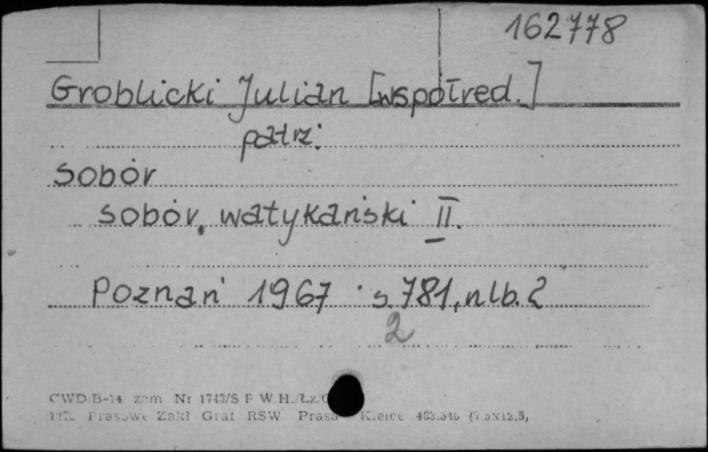 162778
Groblicki Julian [współred.]
patrz:
Sobór
Sobór, watykański II.
Poznań 1967 s. 781, nlb. 2
2
CWD B-14 zam Nr 1743/S P W.H./Łz/
Prasowe Zakł Graf RSW Prasa Kielce